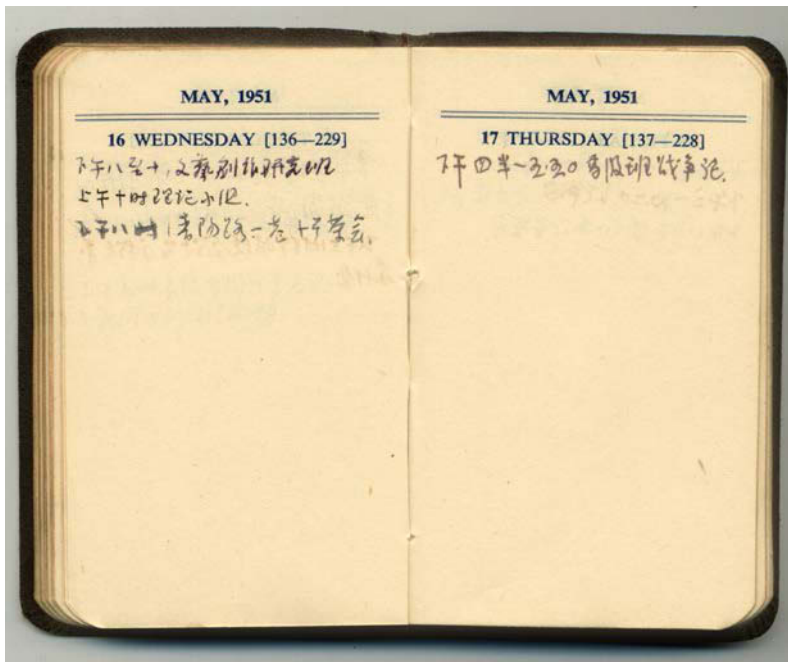 MAY, 1951
16 WEDNESDAY [136—229]
下午八至十，文藝創作研究班
上午十时理论小组.
下午八时
MAY, 1951
17 THURSDAY [137—228]
下午四半一五.五〇 班战争论.